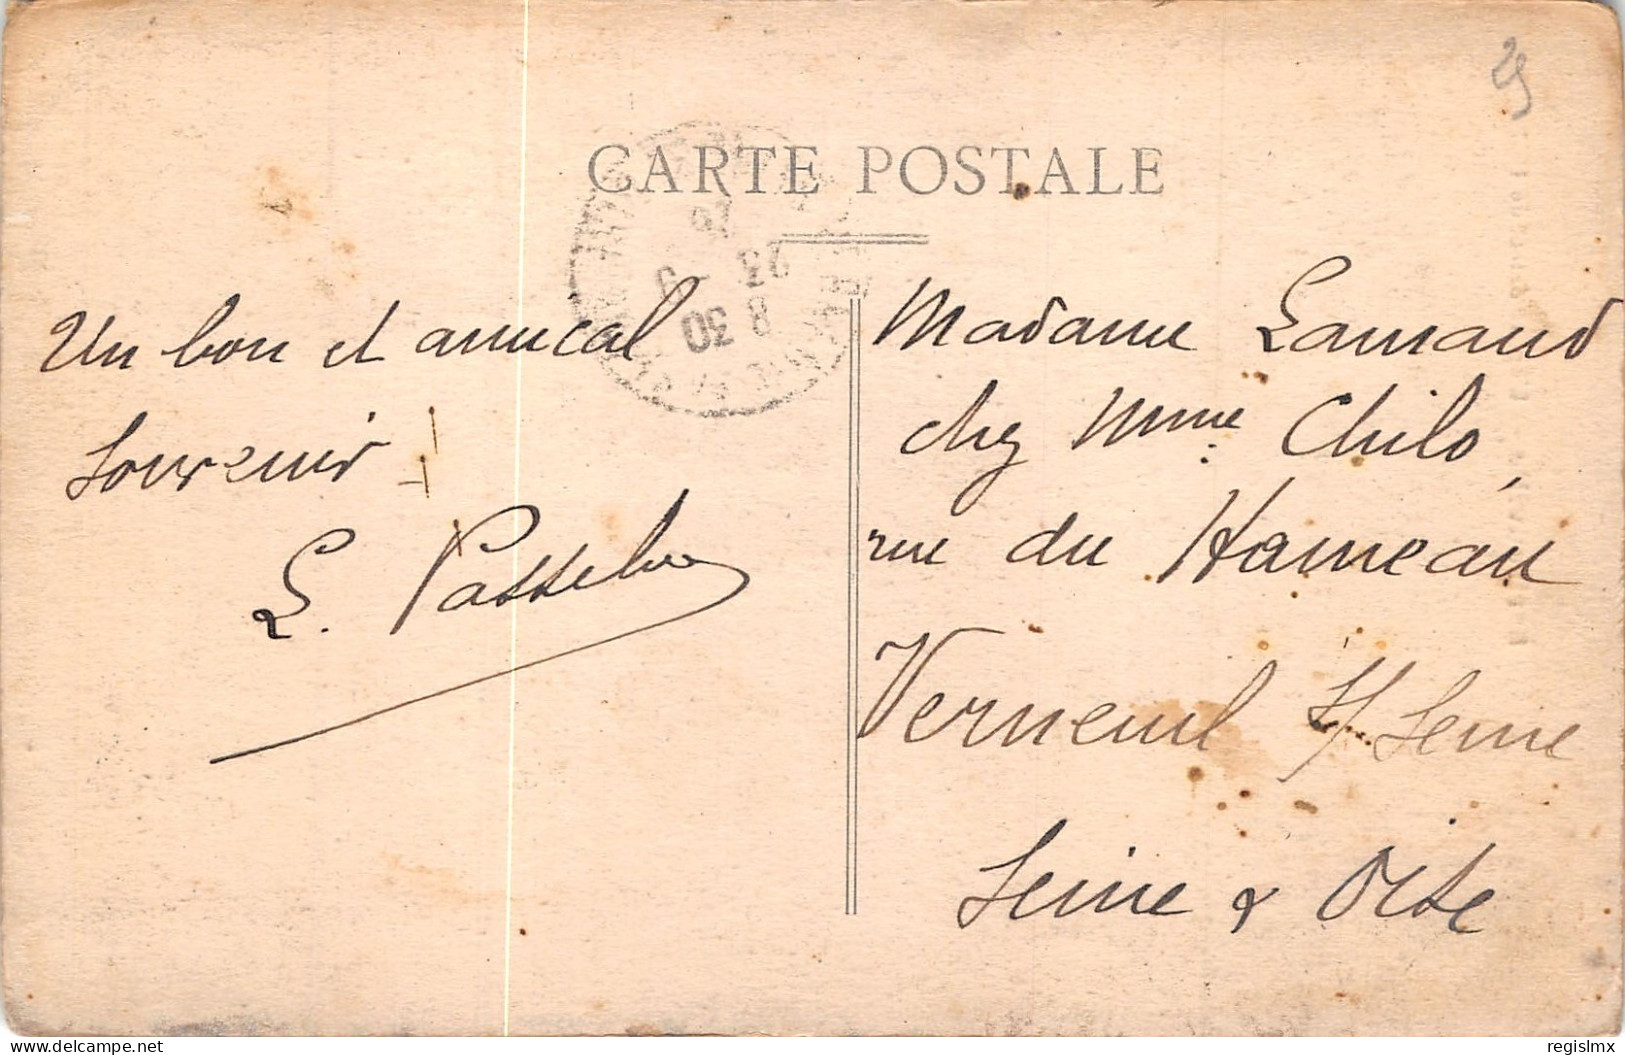 CARTE POSTALE
25
8 30
23 - 9
Un bon et amical
souvenir
L.
Madame Lamaud
chez Mme Chilo,
rue du Hameau
Verneuil s/ Seine
Seine & Oise
www.delcampe.net
regislmx